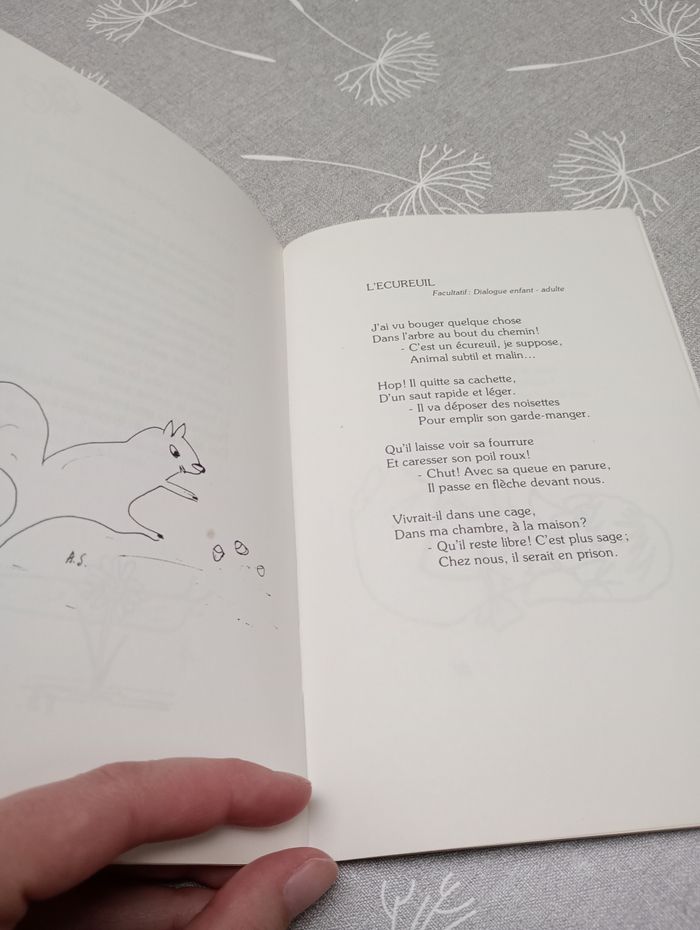 L'ECUREUIL
Facultatif : Dialogue enfant - adulte
J'ai vu bouger quelque chose
Dans l'arbre au bout du chemin!
- C'est un écureuil, je suppose,
Animal subtil et malin...
Hop! Il quitte sa cachette,
D'un saut rapide et léger.
- Il va déposer des noisettes
Pour emplir son garde-manger.
Qu'il laisse voir sa fourrure
Et caresser son poil roux!
- Chut! Avec sa queue en parure,
Il passe en flèche devant nous.
Vivrait-il dans une cage,
Dans ma chambre, à la maison?
- Qu'il reste libre! C'est plus sage;
Chez nous, il serait en prison.
A.S.